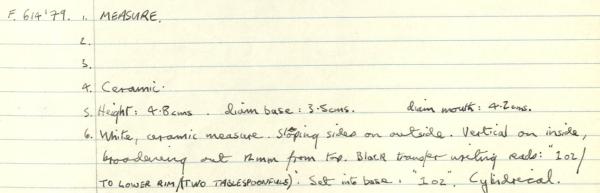 F. 614'79. 1. MEASURE.
2.
3.
4. Ceramic.
5. Height: 4.8cms. diam base: 3.5cms. diam mouth: 4.2cms.
6. White, ceramic measure. Sloping sides on outside. Vertical on inside,
broadening out 12mm from top. Black transfer writing reads: "1 oz/
TO LOWER RIM/(TWO TABLESPOONFULS)". Set into base. "1 oz". Cylindrical.